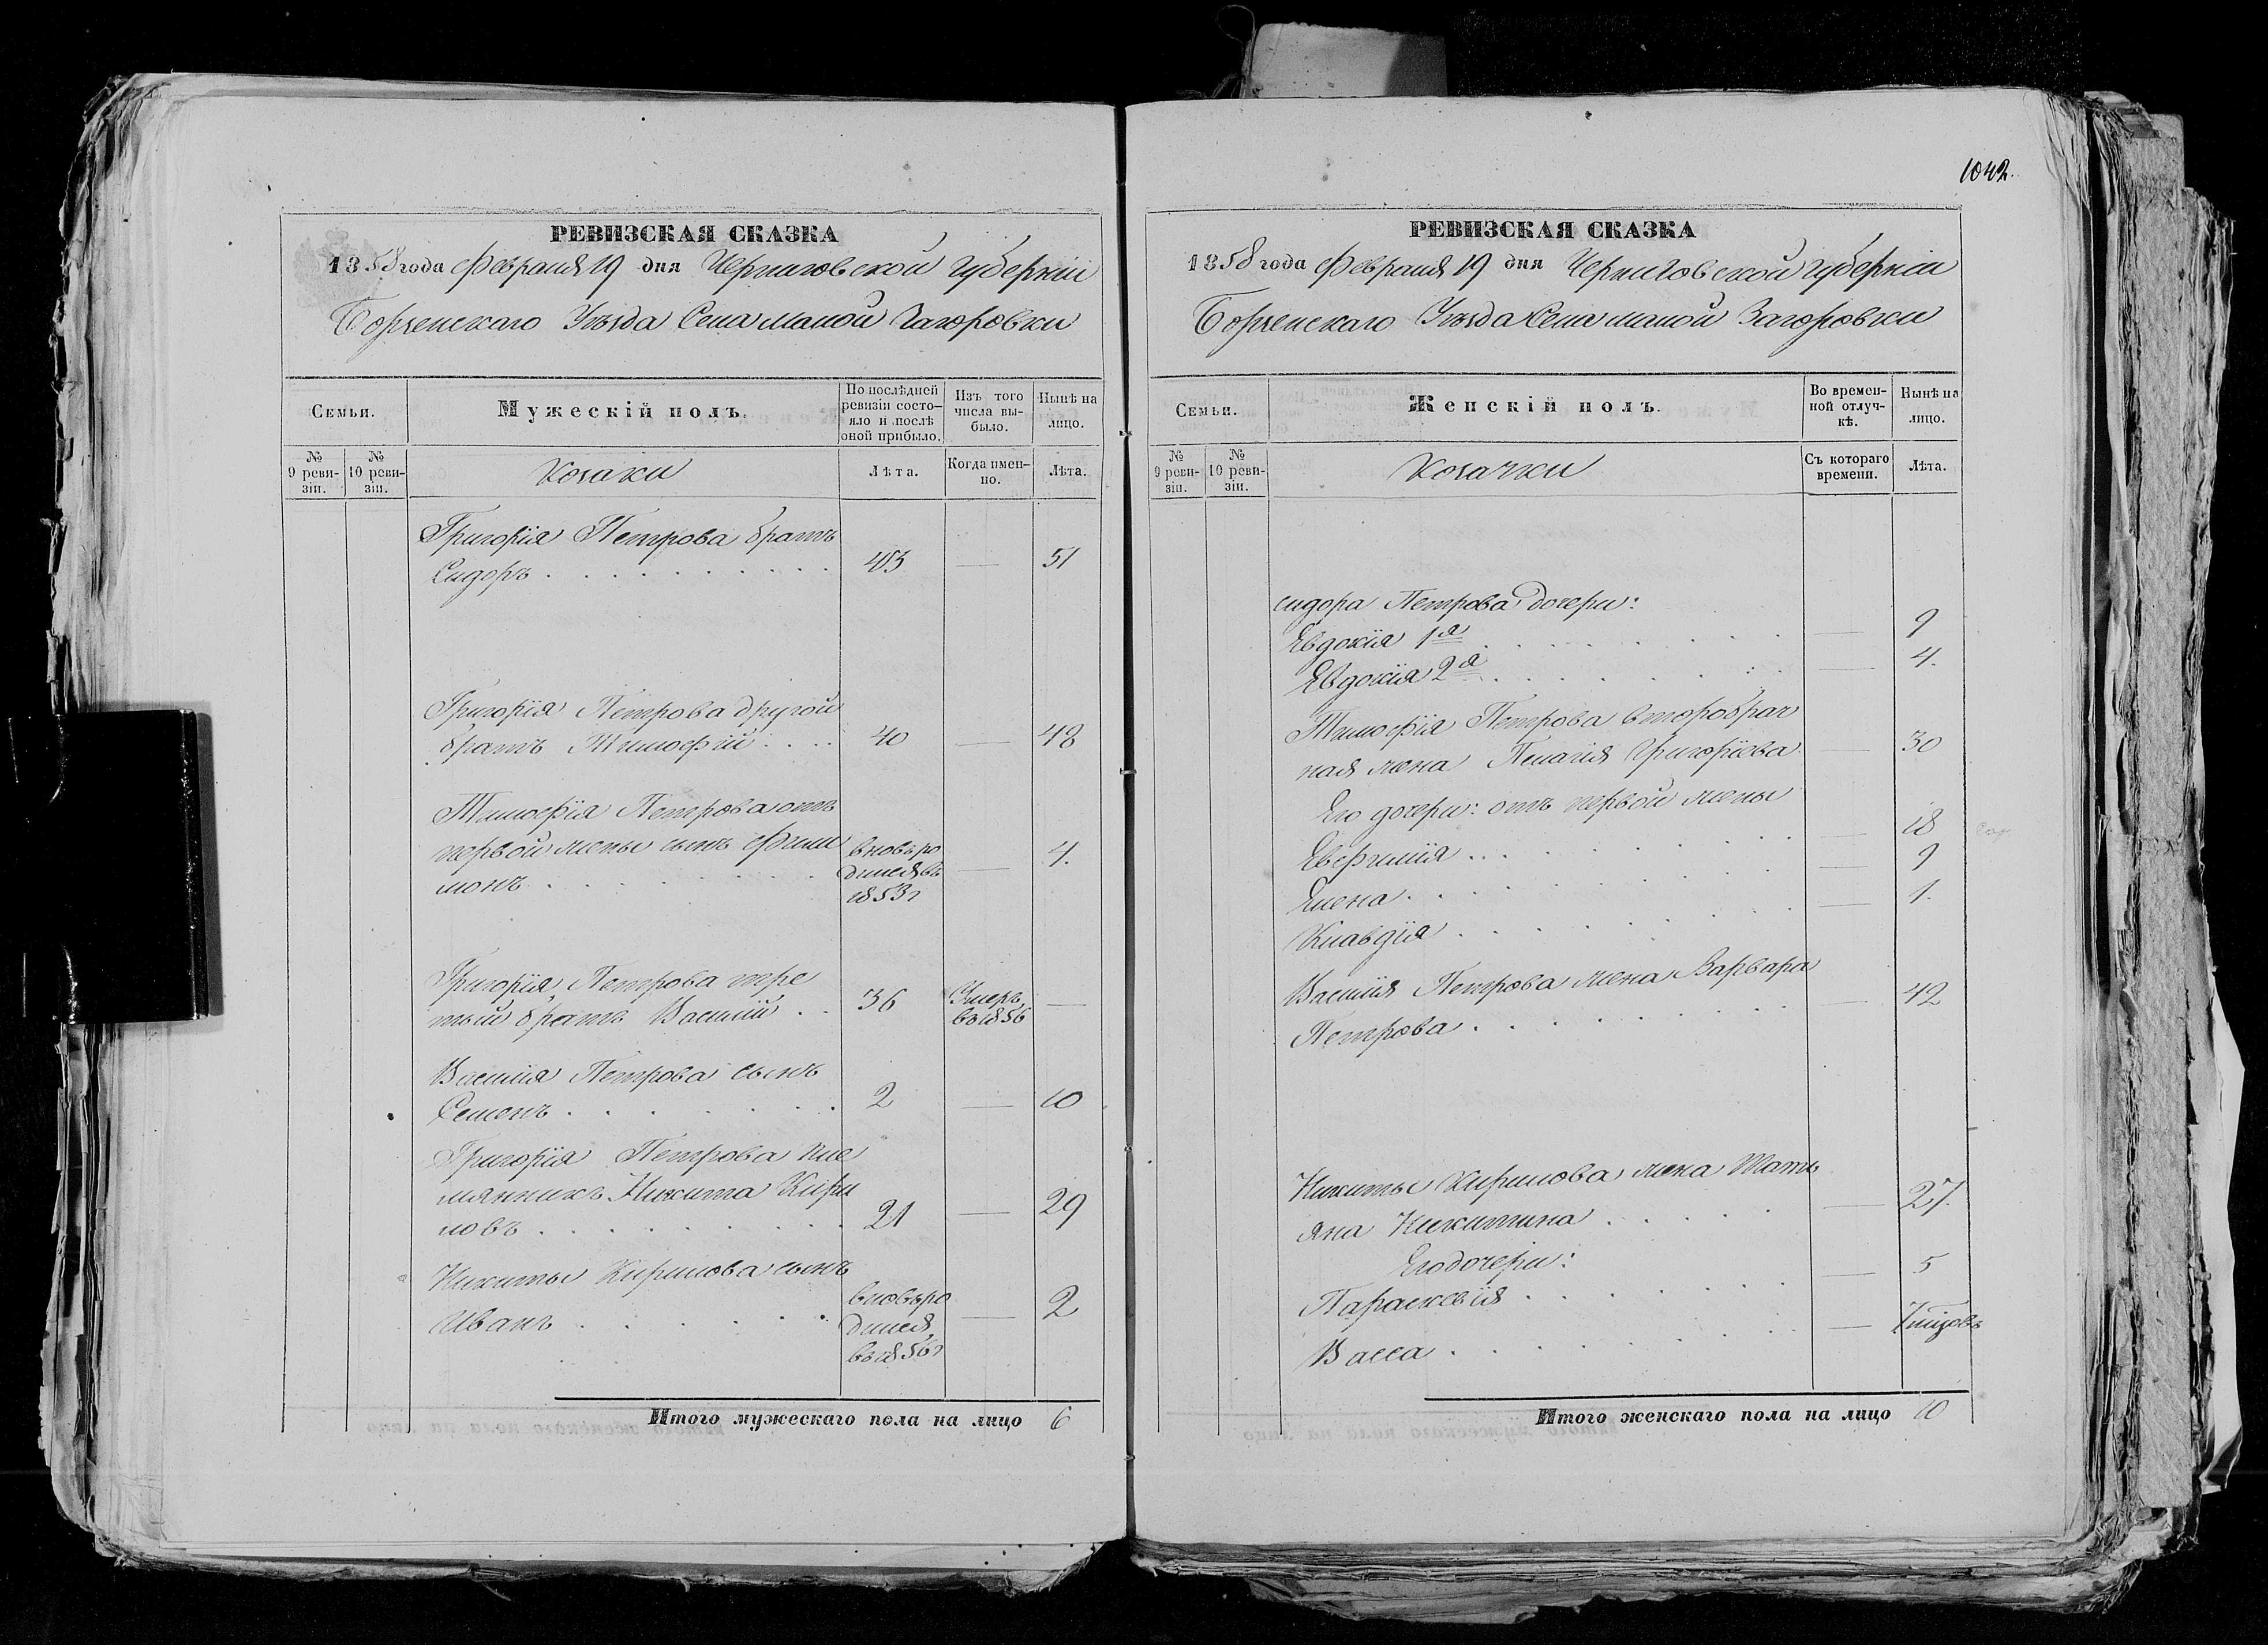 РЕВИЗСКАЯ СКАЗКА
1858 года Февраля 19 дня Черниговской Губерніи
Борзенскаго Уѣзда Села малой Загоровки
Семьи.
Мужескій полъ.
По послѣдней ревизіи состо-
яло и послѣ оной прибыло.
Изъ того числа вы-
было.
Нынѣ на лицо.
№ 9 реви-
зіи.
№ 10 реви-
зіи.
Козаки
Лѣта.
Когда имен-
но.
Лѣта.
Григорія Петрова братъ
Сидоръ . . . . . . . . . . 43 — 51
Григорія Петрова другой
братъ Тимофій . . . . 40 — 48
Тимофія Петрова отъ
первой жены сынъ Фили
монъ . . . . . . . . вновь ро
дился въ
1853 г — 4.
Григорія Петрова тре
тый братъ Василій . . 36 Умеръ
въ 1856 —
Василія Петрова сынъ
Семенъ . . . . . . . 2 — 10
Григорія Петрова пле
мянникъ Никита Кири
ловъ . . . . . . . . . 21 — 29
Никиты Кирилова сынъ
Иванъ . . . . . . вновь ро
дился
въ 1856 г — 2
Итого мужескаго пола на лицо 6
1042.
РЕВИЗСКАЯ СКАЗКА
1858 года Февраля 19 дня Черниговской Губерніи
Борзенскаго Уѣзда Села малой Загоровки
Семьи.
Женскій полъ.
Во времен-
ной отлуч-
кѣ.
Нынѣ на лицо.
№ 9 реви-
зіи.
№ 10 реви-
зіи.
Козачки
Съ котораго времени.
Лѣта.
сидора Петрова дочери:
Евдокія 1я . . . . . . . — 9
Евдокія 2я . . . . . . . — 4.
Тимофія Петрова второбрач
ная жена Пелагія Григоріева — 30
Его дочери: отъ первой жены
Евфимія . . . . . . . . — 18
Елена . . . . . . . . — 9
Клавдія . . . . . . . — 1.
Василія Петрова жена Варвара
Петрова . . . . . . . . — 42
Никиты Кирилова жена Тать
яна Никитина . . . . . — 27.
Его дочери:
Параскевія . . . . . . . — 5
Васса . . . . . . . . — 7 мѣсцовъ
Итого женскаго пола на лицо 10